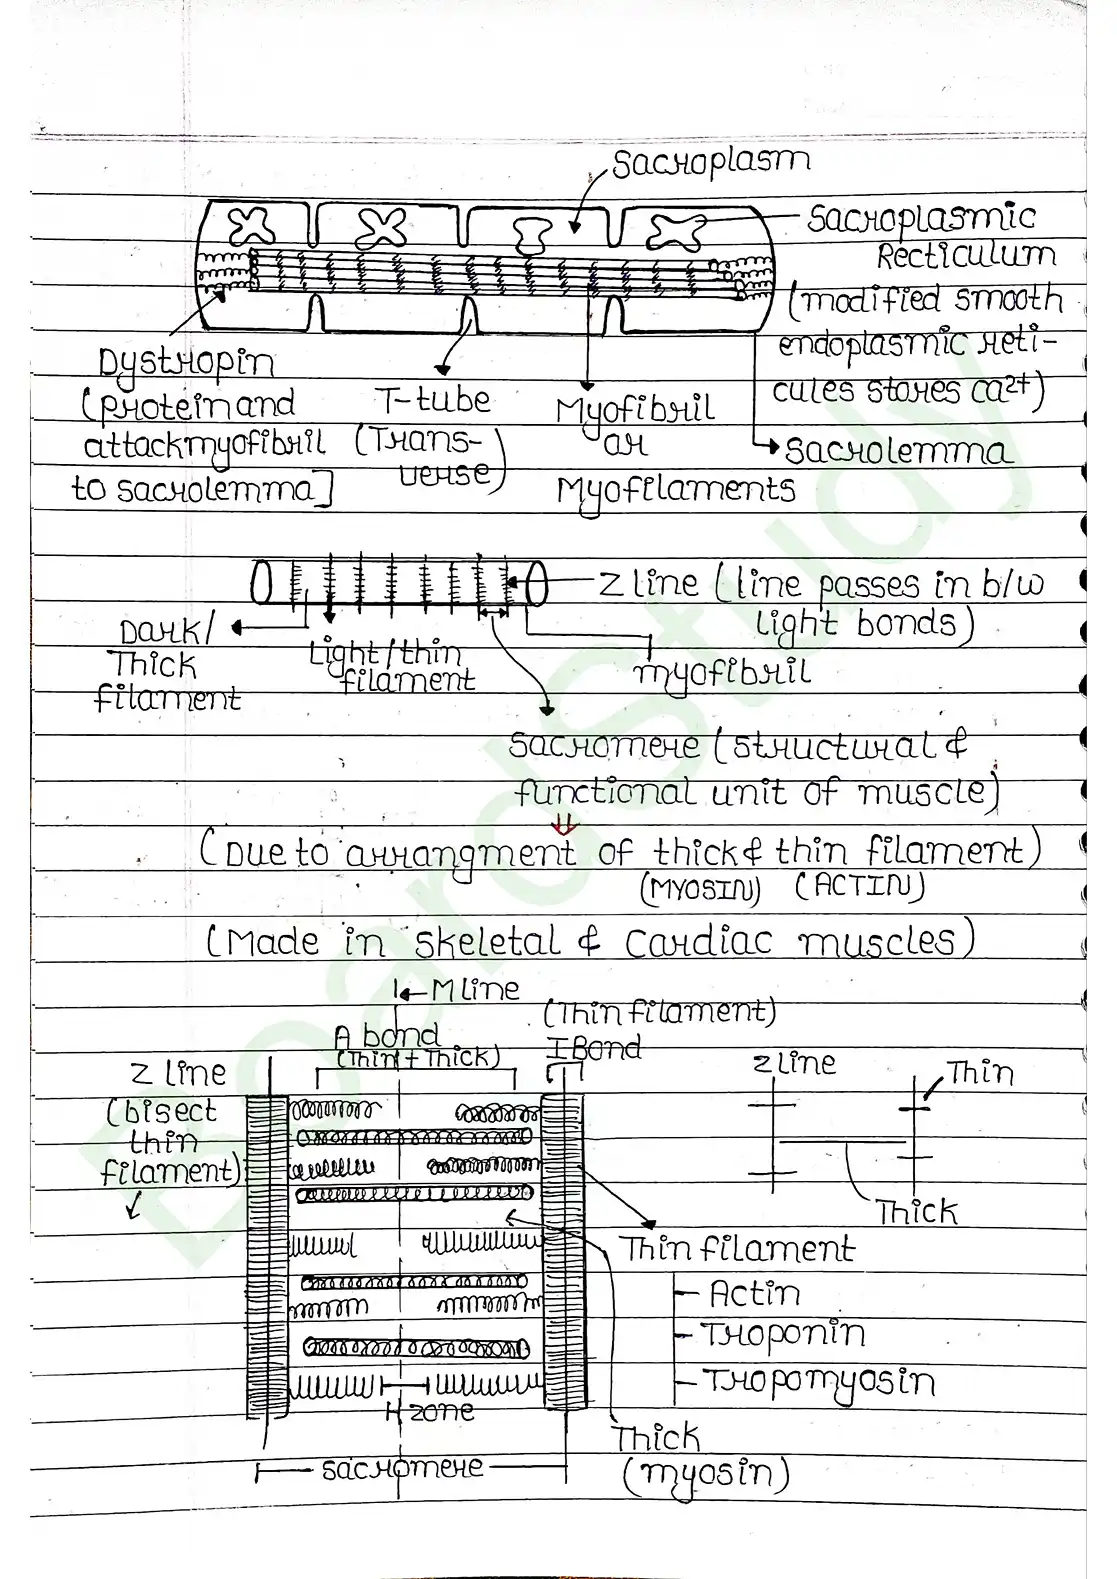 Sacroplasm
Sacroplasmic
Recticulum
(modified smooth
endoplasmic reti-
cules stores ca2+)
Sacrolemma
Dystropin
(protein and
attack myofibril
to sacrolemma]
T-tube
(Trans-
verse)
Myofibril
or
Myofilaments
Z line (line passes in b/w
light bonds)
Dark/
Thick
filament
Light/thin
filament
myofibril
sacromere (structural &
functional unit of muscle)
(Due to arrangment of thick & thin filament)
(MYOSIN) (ACTIN)
(Made in skeletal & cardiac muscles)
M line
A bond
(Thin + Thick)
(Thin filament)
I Bond
Z line
(bisect
thin
filament)
Z line
Thin
Thick
Thin filament
Actin
Troponin
Tropomyosin
H zone
Thick
(myosin)
sacromere
BoardStudy